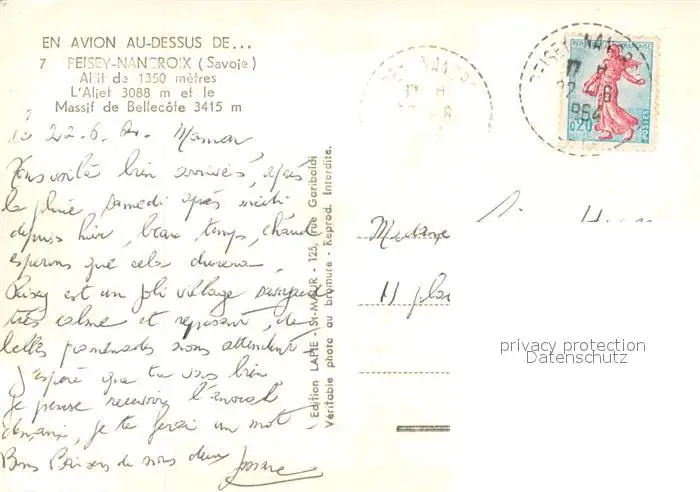 EN AVION AU-DESSUS DE...
7 PEISEY-NANCROIX (Savoie)
Altit de 1350 mètres
L'Aliet 3088 m et le
Massif de Bellecôte 3415 m
22-6-64- Maman
Nous voilà bien arrivés, après
la pluie samedi après midi
depuis hier, beau temps, chaud
esperons que cela durera,
Peisey est un joli village savoyard
très calme et reposant, de
belles promenades nous attendent
J'espère que tu vas bien
je pense recevoir l'
, je te ferai un mot.
Bons Baisers de nous deux
Edition LAPIE - St-MAUR - 125, rue Garibaldi
Véritable photo au bromure - Reprod. Interdite.
PEISEY NAN
17 H
22 - 6
1964
0,20
POSTES
Madame
11 pla
privacy protection
Datenschutz